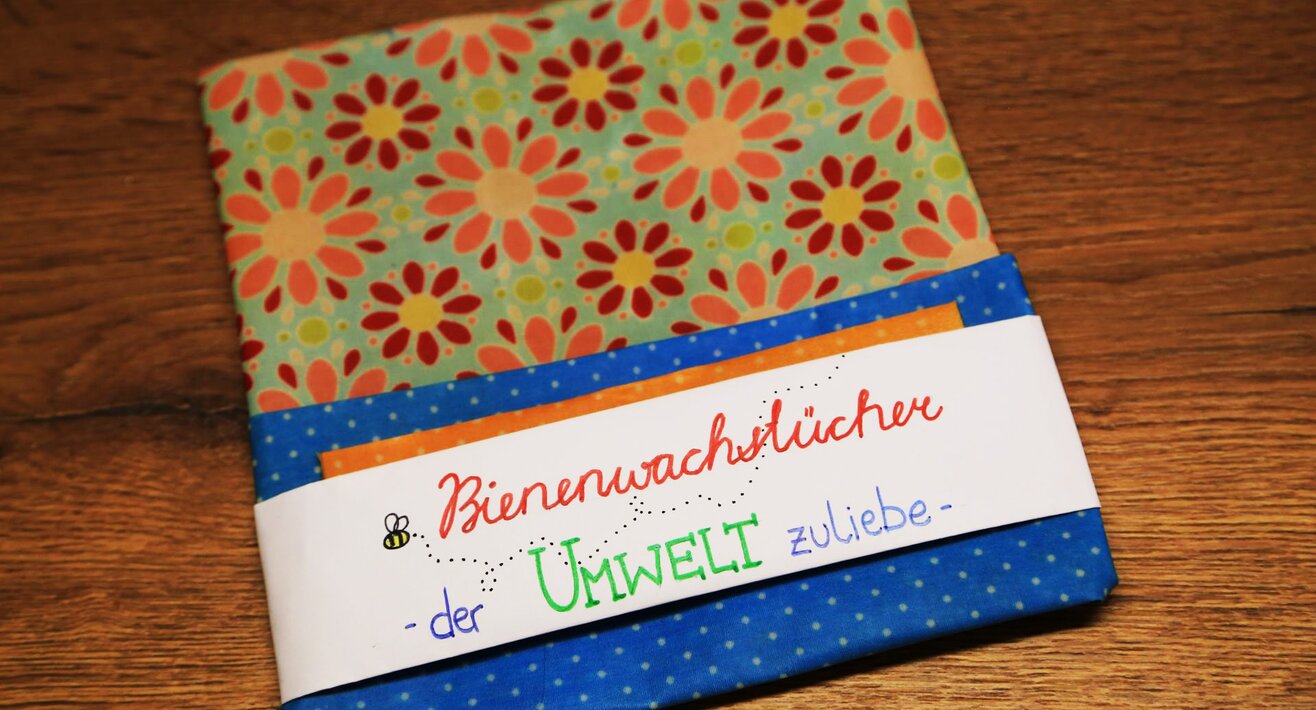 Bienenwachstücher
- der UMWELT zuliebe -